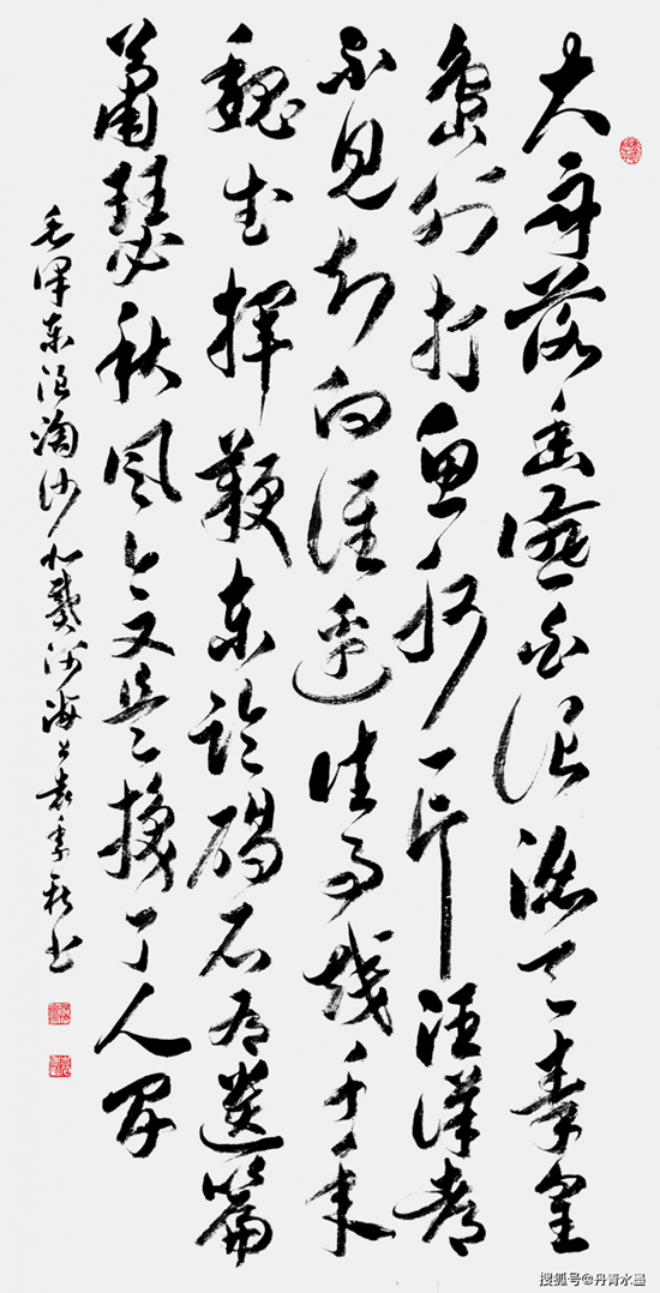 大雨落幽燕白浪滔天秦皇
島外打鱼船一片汪洋都
不見知向谁边往事越千年
魏武揮鞭东临碣石有遗篇
萧瑟秋风今又是换了人间
毛泽东浪淘沙北戴河
搜狐号@丹青水墨